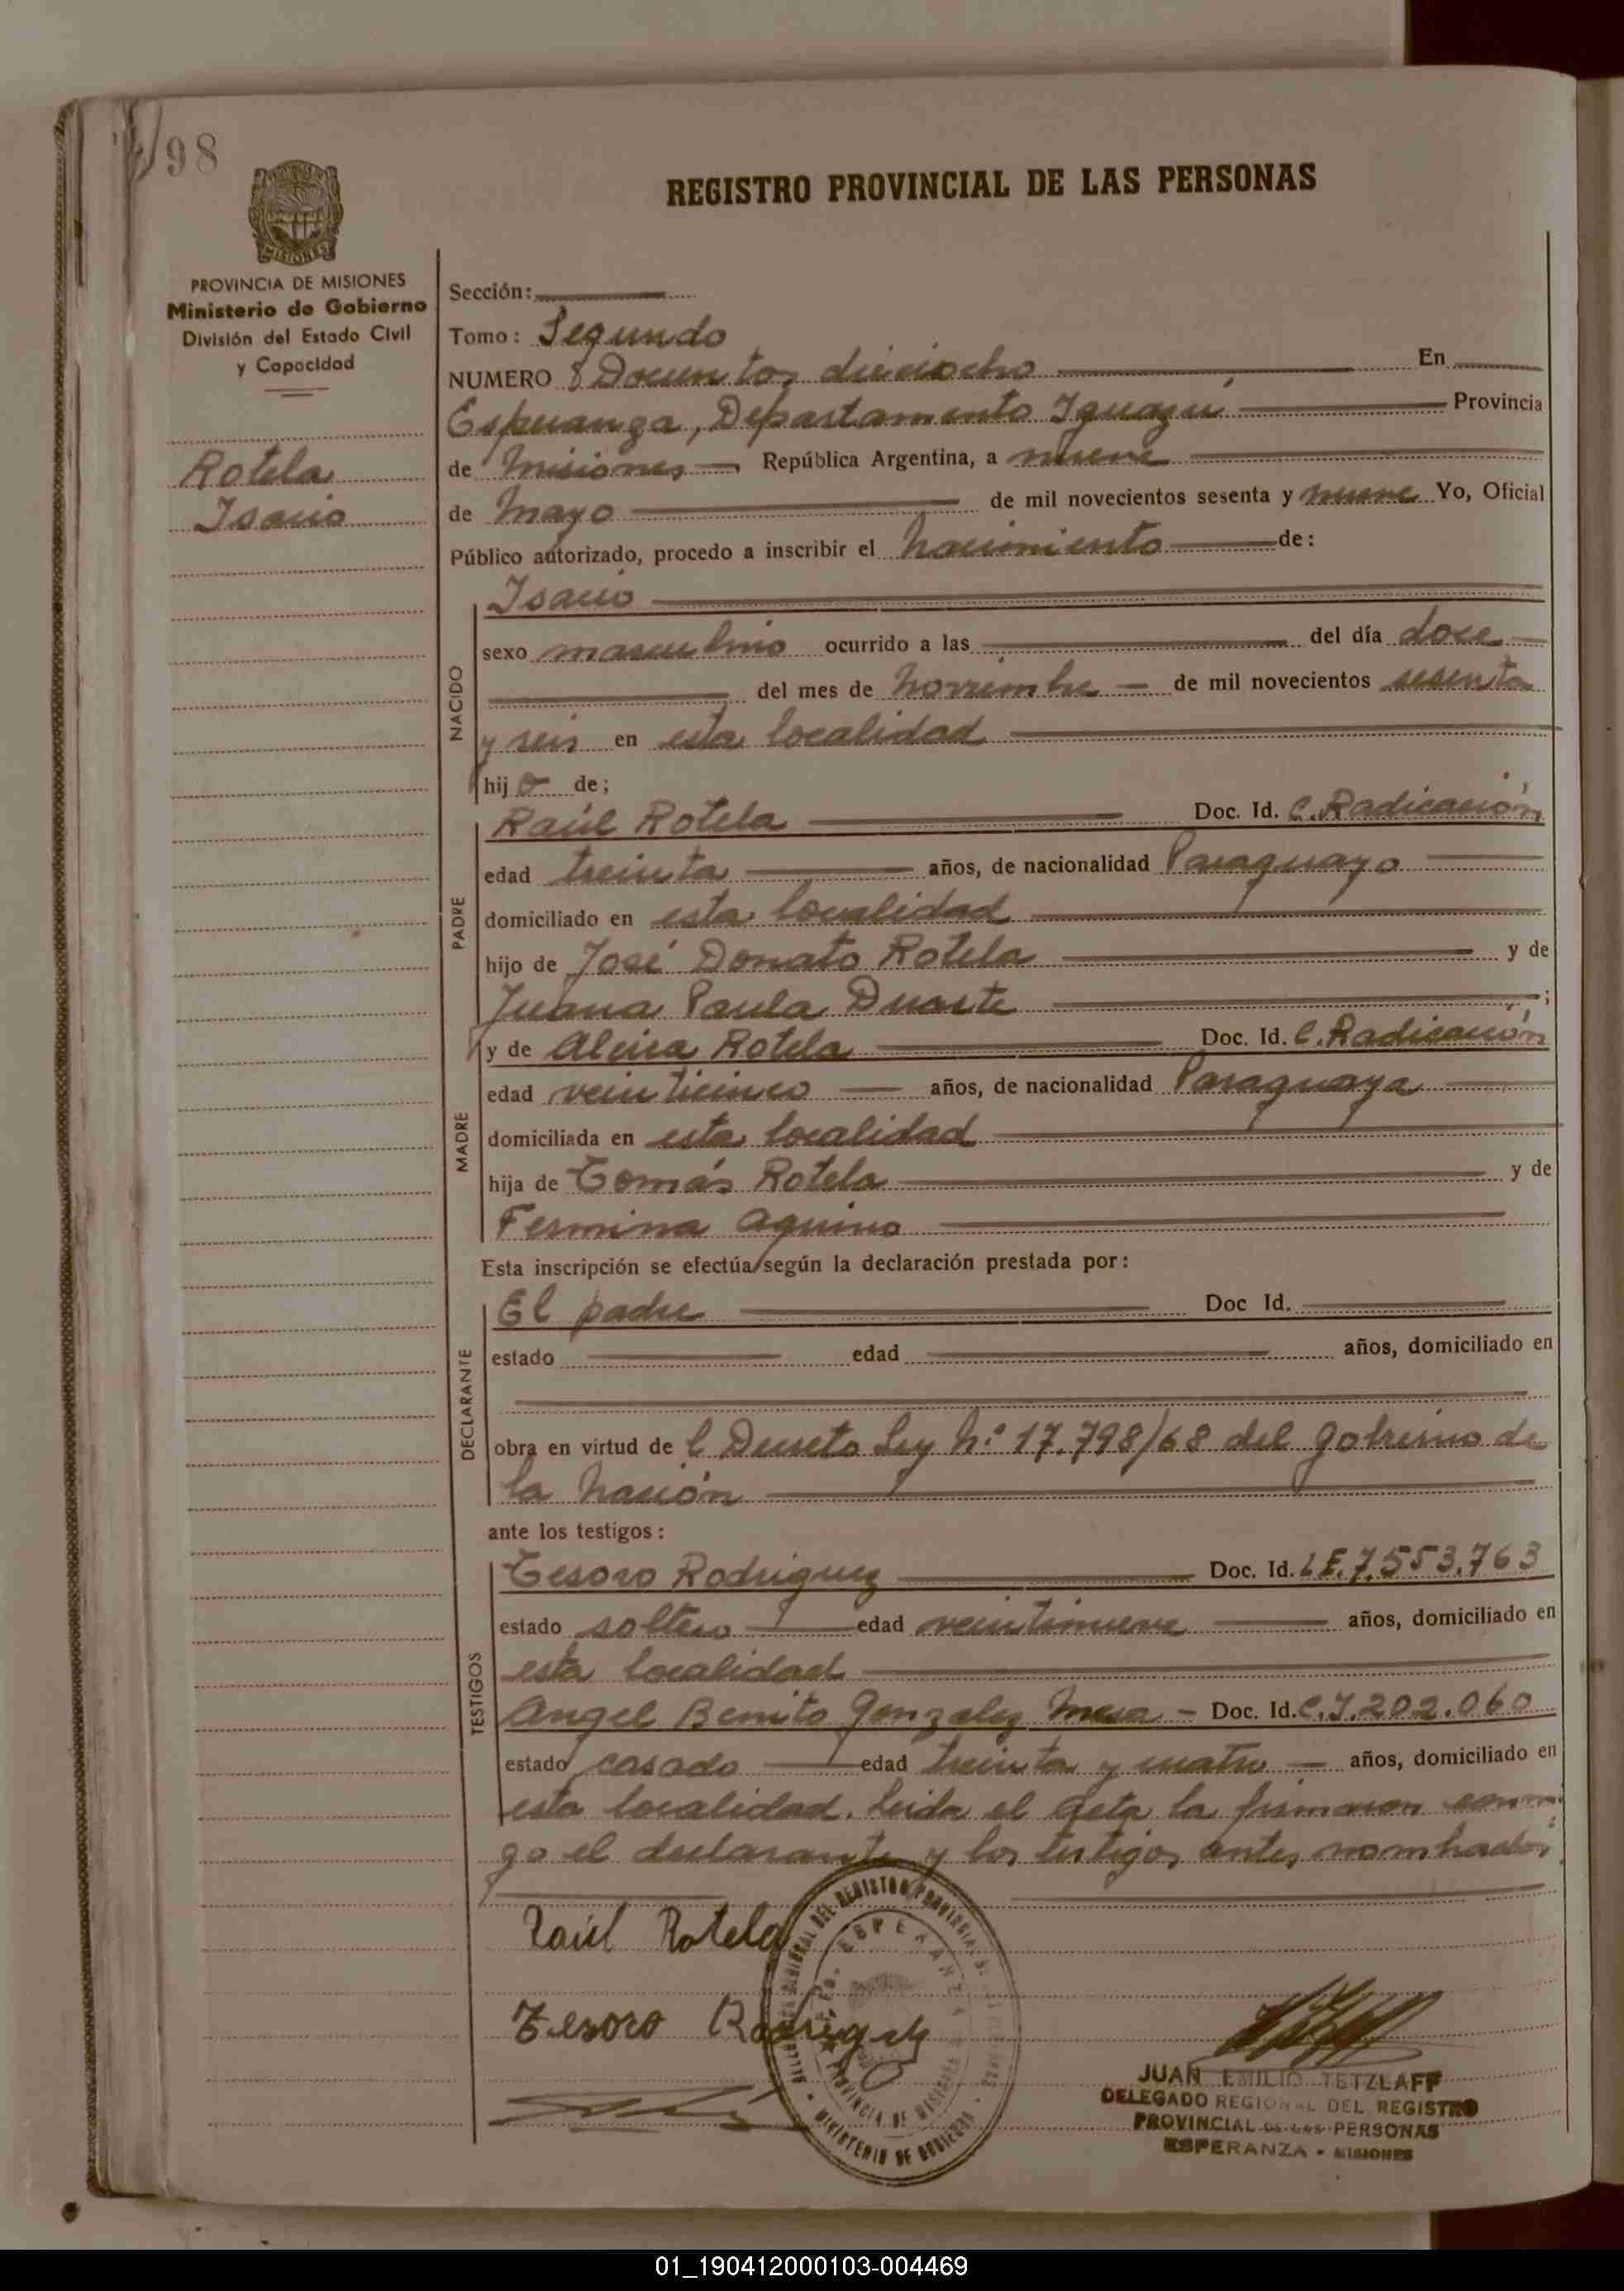 98
REGISTRO PROVINCIAL DE LAS PERSONAS
MISIONES
PROVINCIA DE MISIONES
Ministerio de Gobierno
División del Estado Civil
y Capacidad
Rotela
Isacio
Sección:
Tomo: Segundo
NUMERO Docientos dieciocho En
Esperanza, Departamento Iguazú Provincia
de Misiones República Argentina, a nueve
de Mayo de mil novecientos sesenta y nueve Yo, Oficial
Público autorizado, procedo a inscribir el Nacimiento de:
NACIDO
Isacio
sexo masculino ocurrido a las del día doce
del mes de Noviembre de mil novecientos sesenta
y seis en esta localidad
hijo de;
PADRE
Raúl Rotela Doc. Id. C. Radicación
edad treinta años, de nacionalidad Paraguayo
domiciliado en esta localidad
hijo de José Donato Rotela y de
Juana Paula Duarte ;
MADRE
y de Alcira Rotela Doc. Id. C. Radicación
edad veinticinco años, de nacionalidad Paraguaya
domiciliada en esta localidad
hija de Tomás Rotela y de
Fermina Aquino
Esta inscripción se efectúa según la declaración prestada por:
DECLARANTE
El padre Doc Id.
estado edad años, domiciliado en
obra en virtud de l Decreto Ley Nº 17.798/68 del Gobierno de
la Nación
ante los testigos:
TESTIGOS
Tesoro Rodriguez Doc. Id. L.E. 7.553.763
estado soltero edad veintinueve años, domiciliado en
esta localidad
Angel Benito Gonzalez Mesa - Doc. Id. C.I. 202.060
estado casado edad treinta y cuatro años, domiciliado en
esta localidad. Leida el acta la firmaron conmi
go el declarante y los testigos antes nombrados
Raúl Rotela
Tesoro Rodriguez
ESPERANZA
PROVINCIA DE MISIONES
MINISTERIO DE GOBIERNO
JUAN EMILIO TETZLAFF
DELEGADO REGIONAL DEL REGISTRO
PROVINCIAL DE LAS PERSONAS
ESPERANZA - MISIONES
01_190412000103-004469